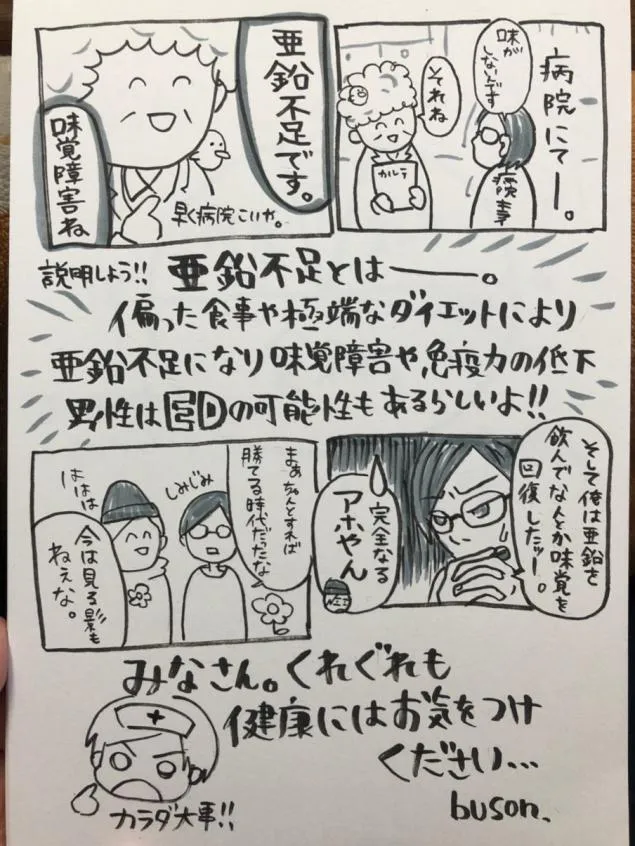 病院にてー。
味が
しないんです
それね
カルテ
亜鉛不足です。
味覚障害ね
早く病院こいや。
説明しよう!! 亜鉛不足とは――。
偏った食事や極端なダイエットにより
亜鉛不足になり味覚障害や、免疫力の低下
男性はEDの可能性もあるらしいよ!!
そして俺は亜鉛を
飲んでなんとか味覚を
回復したッー。
完全なる
アホやん
まぁちゃんとすれば
勝てる時代だったな
しみじみ
ははは
今は見る影も
ねぇな。
みなさん。くれぐれも
健康にはお気をつけ
ください...
カラダ大事!!
buson.